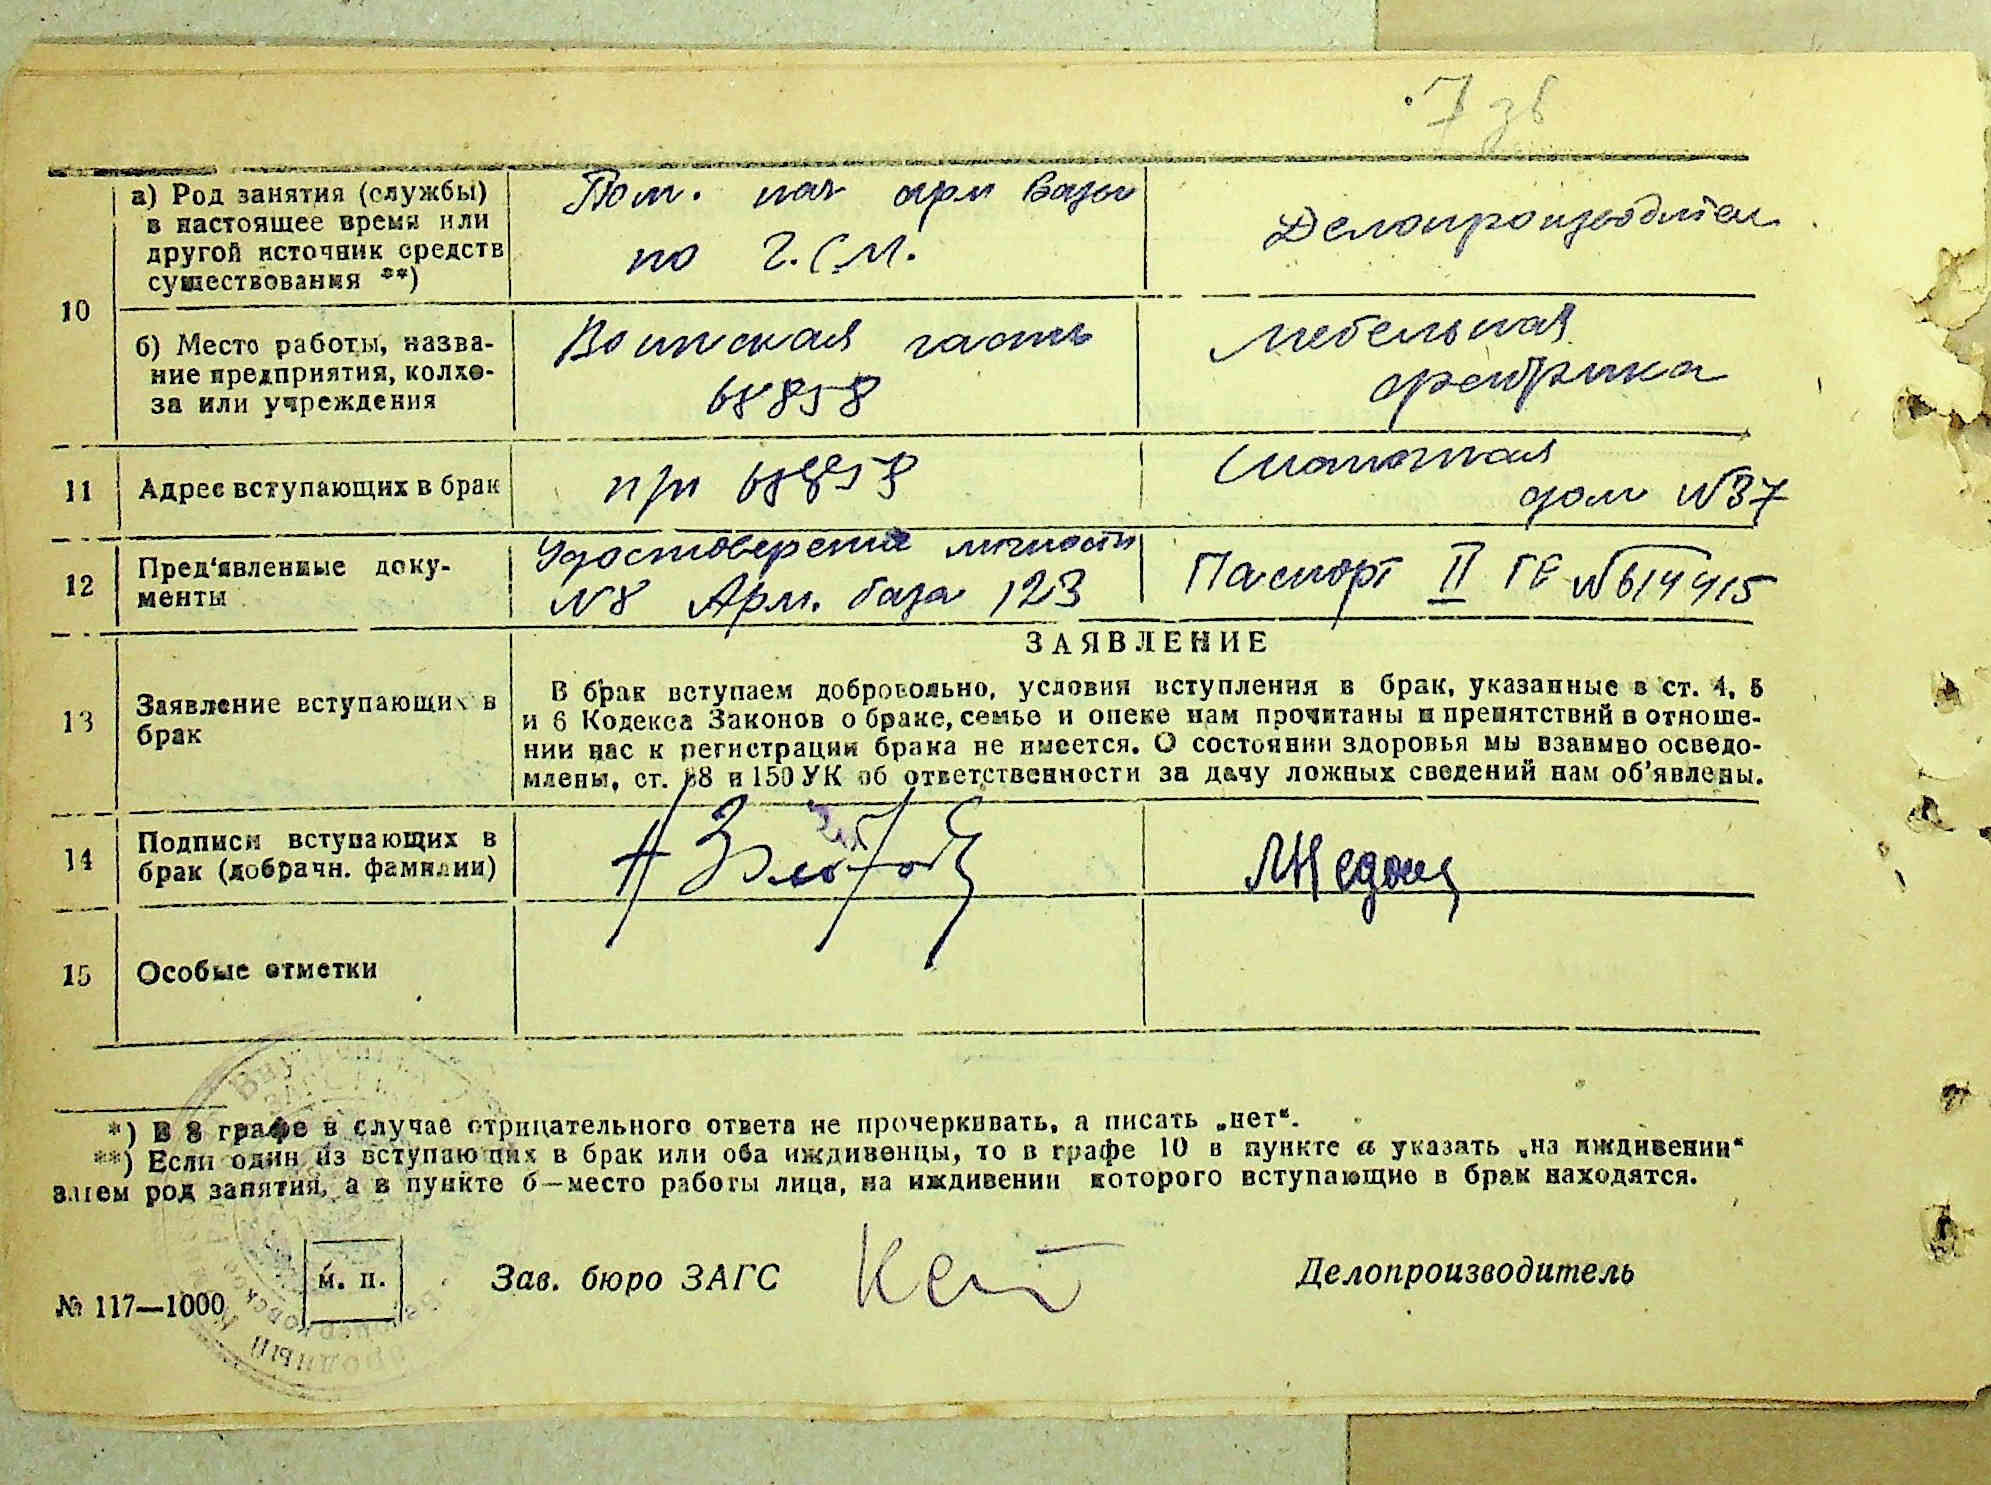 7 зв
10
а) Род занятия (службы)
в настоящее время или
другой источник средств
существования **)
Пом. нач арм базы
по Г.С.М.
Делопроизводител
б) Место работы, назва-
ние предприятия, колхо-
за или учреждения
Воинская часть
68858
Мебельная
фабрика
11
Адрес вступающих в брак
п/п 68858
дом №37
12
Пред'явленные доку-
менты
Удостоверение личности
№8 Арм. база 123
Паспорт II ГЕ №614415
ЗАЯВЛЕНИЕ
13
Заявление вступающих в
брак
В брак вступаем добровольно, условия вступления в брак, указанные в ст. 4, 5
и 6 Кодекса Законов о браке, семье и опеке нам прочитаны и препятствий в отноше-
нии нас к регистрации брака не имеется. О состоянии здоровья мы взаимно осведо-
млены, ст. 88 и 150 УК об ответственности за дачу ложных сведений нам об'явлены.
14
Подписи вступающих в
брак (добрачн. фамилии)
15
Особые отметки
*) В 8 графе в случае отрицательного ответа не прочеркивать, а писать „нет“.
**) Если один из вступающих в брак или оба иждивенцы, то в графе 10 в пункте а указать „на иждивении“
затем род занятия, а в пункте б—место работы лица, на иждивении которого вступающие в брак находятся.
м. п.
Зав. бюро ЗАГС
Делопроизводитель
№ 117—1000